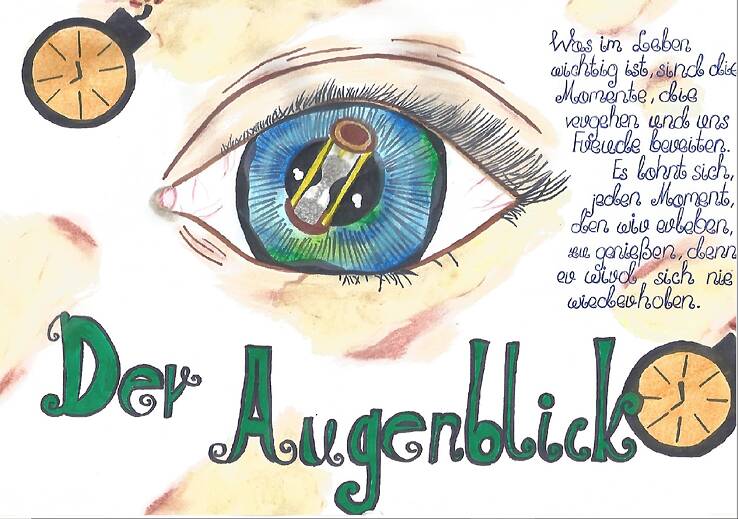 Was im Leben
wichtig ist, sind die
Momente, die
vergehen und uns
Freude bereiten.
Es lohnt sich,
jeden Moment,
den wir erleben,
zu genießen, denn
er wird sich nie
wiederholen.
Der Augenblick